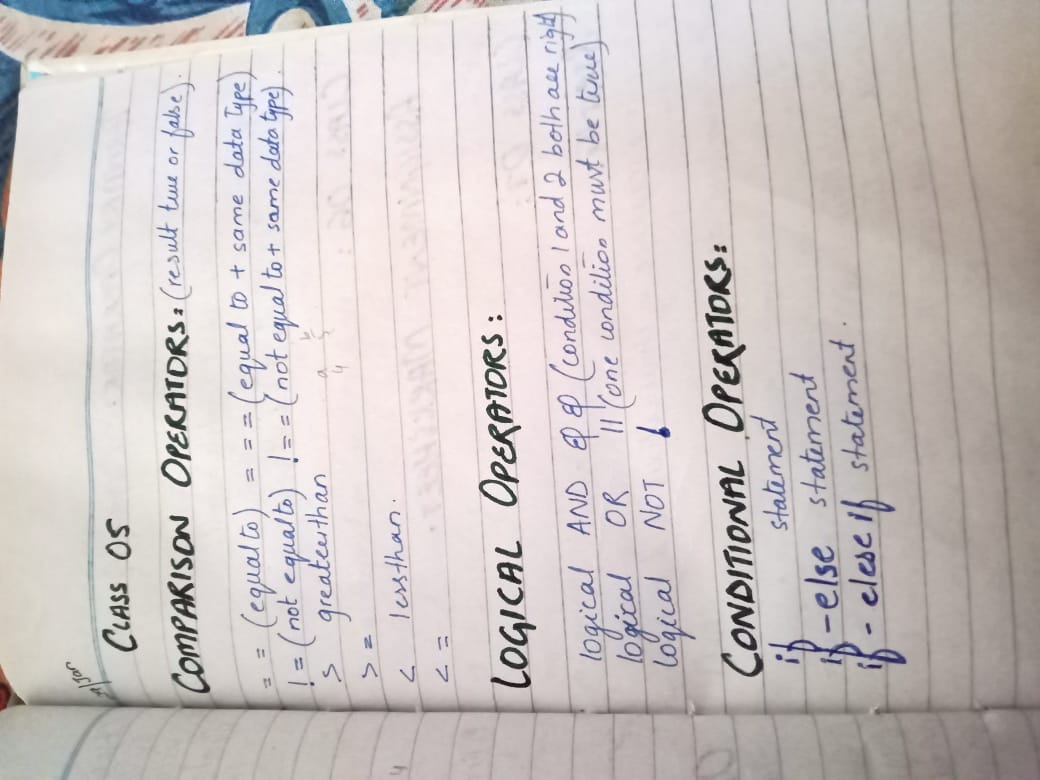 CLASS 05
COMPARISON OPERATORS: (result true or false).
= = (equal to) = = = (equal to + same data Type)
! = (not equal to) ! = = (not equal to + same data type).
> greaterthan
> =
< lessthan.
< =
LOGICAL OPERATORS:
logical AND && (condition 1 and 2 both are right)
logical OR || (one condition must be true)
logical NOT !
CONDITIONAL OPERATORS:
if statement
if - else statement
if - elese if statement.